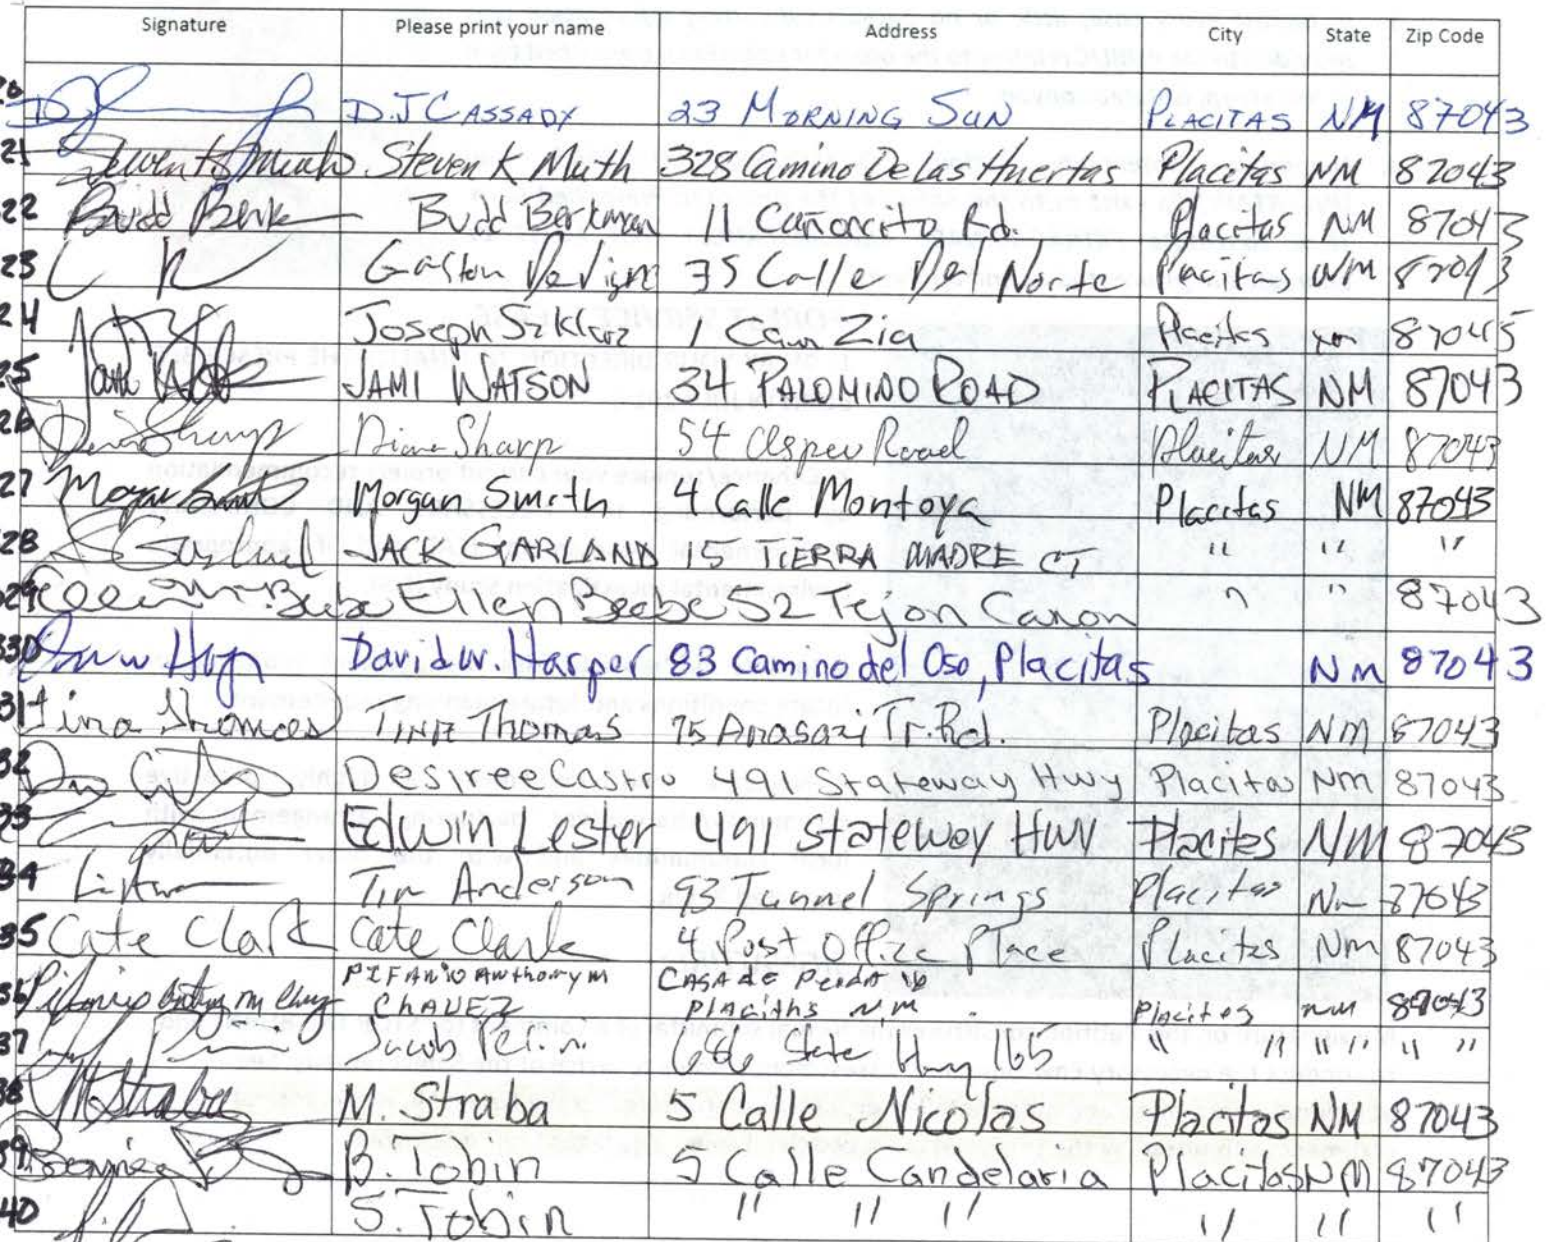 Signature Please print your name Address City State Zip Code
20 D.J CASSADY 23 MORNING SUN PLACITAS NM 87043
21 Steven K Muth 328 Camino De Las Huertas Placitas NM 87043
22 Budd Berk Budd Berkman 11 Cañoncito Rd. Placitas NM 87043
23 Gaston 35 Calle Del Norte Placitas NM 87043
24 Joseph 1 Cam Zia Placitas 87045
25 JAMI WATSON 34 PALOMINO ROAD PLACITAS NM 87043
26 Sharp Diane Sharp 54 Aspen Road Placitas NM 87043
27 Morgan Smith Morgan Smith 4 Calle Montoya Placitas NM 87043
28 JACK GARLAND 15 TIERRA MADRE CT " " "
29 Ellen Beebe 52 Tejon Canon " " 87043
330 David W. Harper 83 Camino del Oso, Placitas Nm 87043
31 Tina Thomas Tina Thomas 75 Anasazi Tr. Rd. Placitas NM 87043
32 Desiree Castro 491 Stateway Hwy Placitas Nm 87043
33 Edwin Lester 491 stateway HWY Placites NM 87043
34 Tim Anderson 93 Tunnel Springs Placitas Nm 87043
35 Cate Clark Cate Clark 4 Post Office Place Placites Nm 87043
36 PIFANIO ANTHONY M CASA de
CHAVEZ Placiths NM. Placites nm 87043
37 Jacob 666 State Hwy 165 " " " " " "
38 M Straba M. Straba 5 Calle Nicolas Placitas NM 87043
39 B. Tobin 5 Calle Candelaria Placitas NM 87043
40 S. Tobin " " " " " "